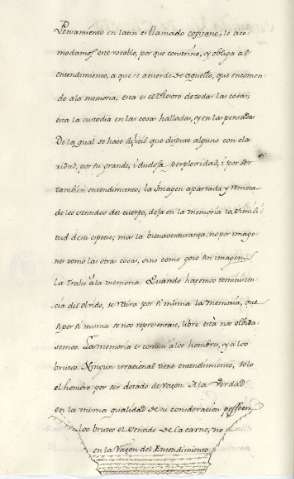 Pensamiento en latin es llamado cogitatio, le aco
modamos este vocablo, por que constriñe, y obliga a el
entendimiento, a que se acuerde de aquello, que encomen
do a la memoria. Esta es el thesoro de todas las cosas;
esta la custodia en las cosas halladas, y en las pensadas
De la qual se hace dificil que dispute alguno con cla
ridad, por su grande, i dudosa perplexidad, i por ser
tambien entendimiento; la Imagen apartada y remota
de los sentidos del cuerpo, dexa en la memoria la simili
tud de su especie; mas la bienaventuranza no por image
nes como las otras cosas, sino como gozo sin imagen
la trahe a la memoria. Quando hacemos reminiscen
cia del olvido, se retira por si misma la memoria, que
si por si misma se nos representase, libre no olvida
semos. La memoria es comun a los hombres, y a los
brutos. Ningun irracional tiene entendimiento, solo
el hombre por ser dotado de razon. A la verdad
en la misma qualidad de su consideracion
los brutos el sentido de la carne, no
en la razon del Entendimiento